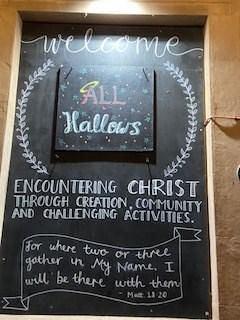 welcome
ALL
Hallows
ENCOUNTERING CHRIST
THROUGH CREATION, COMMUNITY
AND CHALLENGING ACTIVITIES.
For where two or three
gather in My Name, I
will be there with them
- Matt. 18 20